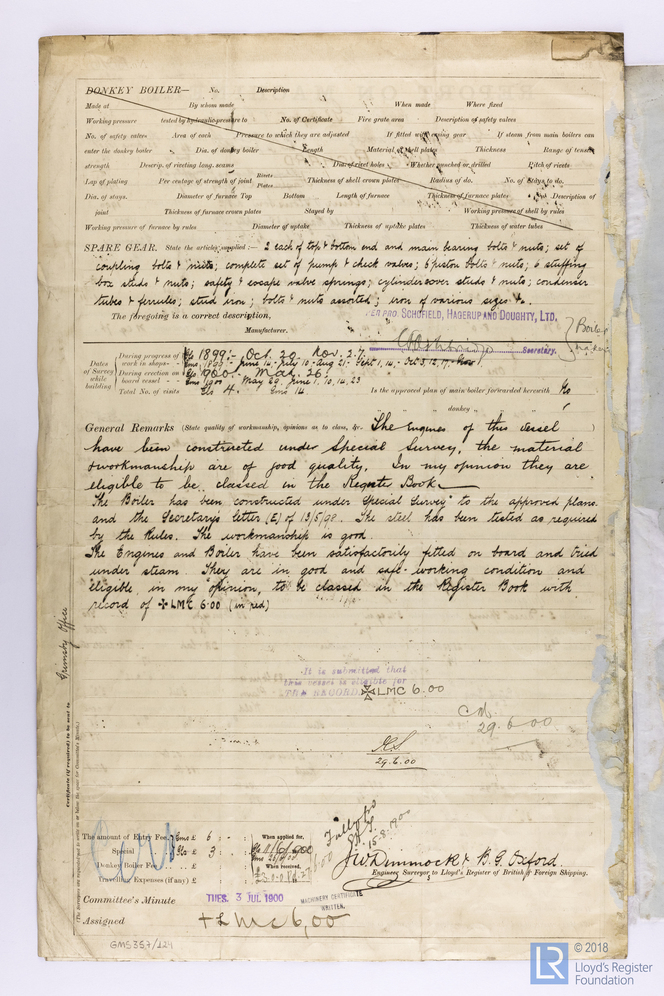 DONKEY BOILER— No. Description
Made at By whom made When made Where fixed
Working pressure tested by hydraulic pressure to No. of Certificate Fire grate area Description of safety valves
No. of safety valves Area of each Pressure to which they are adjusted If fitted with easing gear If steam from main boilers can
enter the donkey boiler Dia. of donkey boiler Length Material of shell plates Thickness Range of tensile
strength Descrip. of riveting long. seams Dia. of rivet holes Whether punched or drilled Pitch of rivets
Lap of plating Per centage of strength of joint Rivets Plates Thickness of shell crown plates Radius of do. No. of Stays to do.
Dia. of stays. Diameter of furnace Top Bottom Length of furnace Thickness of furnace plates Description of
joint Thickness of furnace crown plates Stayed by Working pressure of shell by rules
Working pressure of furnace by rules Diameter of uptake Thickness of uptake plates Thickness of water tubes
SPARE GEAR. State the articles supplied:— 2 each of top & bottom end and main bearing bolts & nuts; set of
coupling bolts & nuts; complete set of pump & check valves; 6 piston bolts & nuts; 6 stuffing
box studs & nuts; safety & escape valve springs; cylinder cover studs & nuts; condenser
tubes & ferrules; stud iron; bolts & nuts assorted; iron of various sizes &.
The foregoing is a correct description,
PER PRO. SCHOFIELD, HAGERUP AND DOUGHTY, LTD.
Manufacturer.
Secretary.
Boiler
Maker
Dates of Survey while building
During progress of work in shops - - Gls 1899:- Oct. 20. Nov. 2. 7.
Ems 1899 - June 14 - July 10 - Aug 21 - Sept 1, 14, - Oct 3, 12, 17, Nov
During erection on board vessel - - Gls 1900:- Mar. 26.
Ems 1900 May 29, June 1, 10, 14, 23
Total No. of visits Gls 4. Ems 14
Is the approved plan of main boiler forwarded herewith Yes
" " donkey " "
General Remarks (State quality of workmanship, opinions as to class, &c. The Engines of this vessel
have been constructed under Special Survey, the material
& workmanship are of good quality. In my opinion they are
eligible to be classed in the Register Book.
The Boiler has been constructed under Special Survey to the approved plans
and the Secretary's letter (E) of 13/5/98. The steel has been tested as required
by the Rules. The workmanship is good.
The Engines and Boiler have been satisfactorily fitted on board and tried
under steam. They are in good and safe working condition and
eligible, in my opinion, to be classed in the Register Book with
record of ✠ LMC 6.00 (in red)
Grimsby Office
Certificate (if required) to be sent to
It is submitted that
this vessel is eligible for
THE RECORD ✠ LMC 6.00
29.6.00
29.6.00
The amount of Entry Fee. Ems £ 6 : - : -
Special Gls £ 3 : - : -
Donkey Boiler Fee £
Travelling Expenses (if any) £
When applied for,
When received,
15.8.1900
J W Dimmock & B. G. Oxford.
Engineer Surveyor to Lloyd's Register of British & Foreign Shipping.
Committee's Minute TUES. 3 JUL 1900
MACHINERY CERTIFICATE
WRITTEN.
Assigned + LMC 6,00
GMS357/124
© 2018
LR Lloyd's Register
Foundation